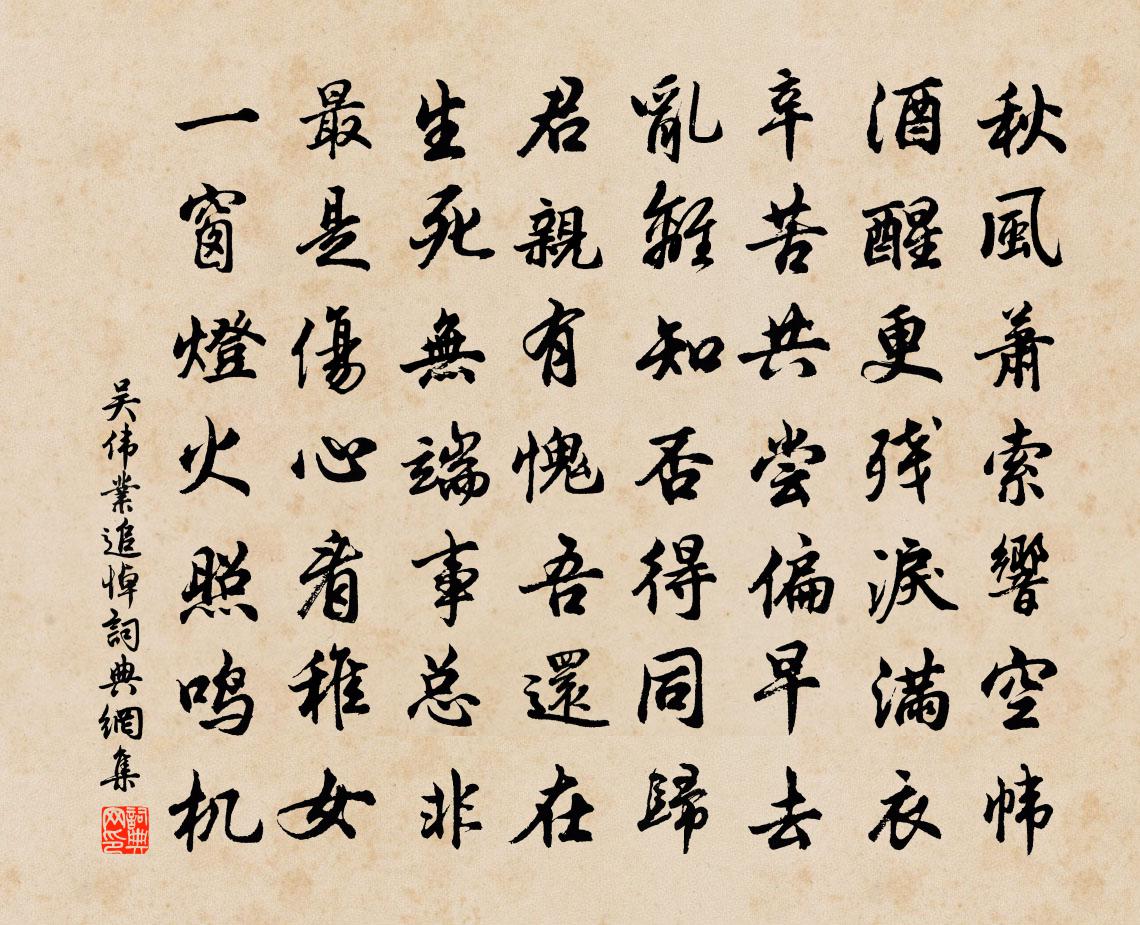 秋風蕭索響空幃
酒醒更残淚滿衣
辛苦共尝偏早去
亂離知否得同歸
君親有愧吾還在
生死無端事总非
最是傷心看稚女
一窗燈火照鸣机
吴伟業追悼詞典網集
詞典网印